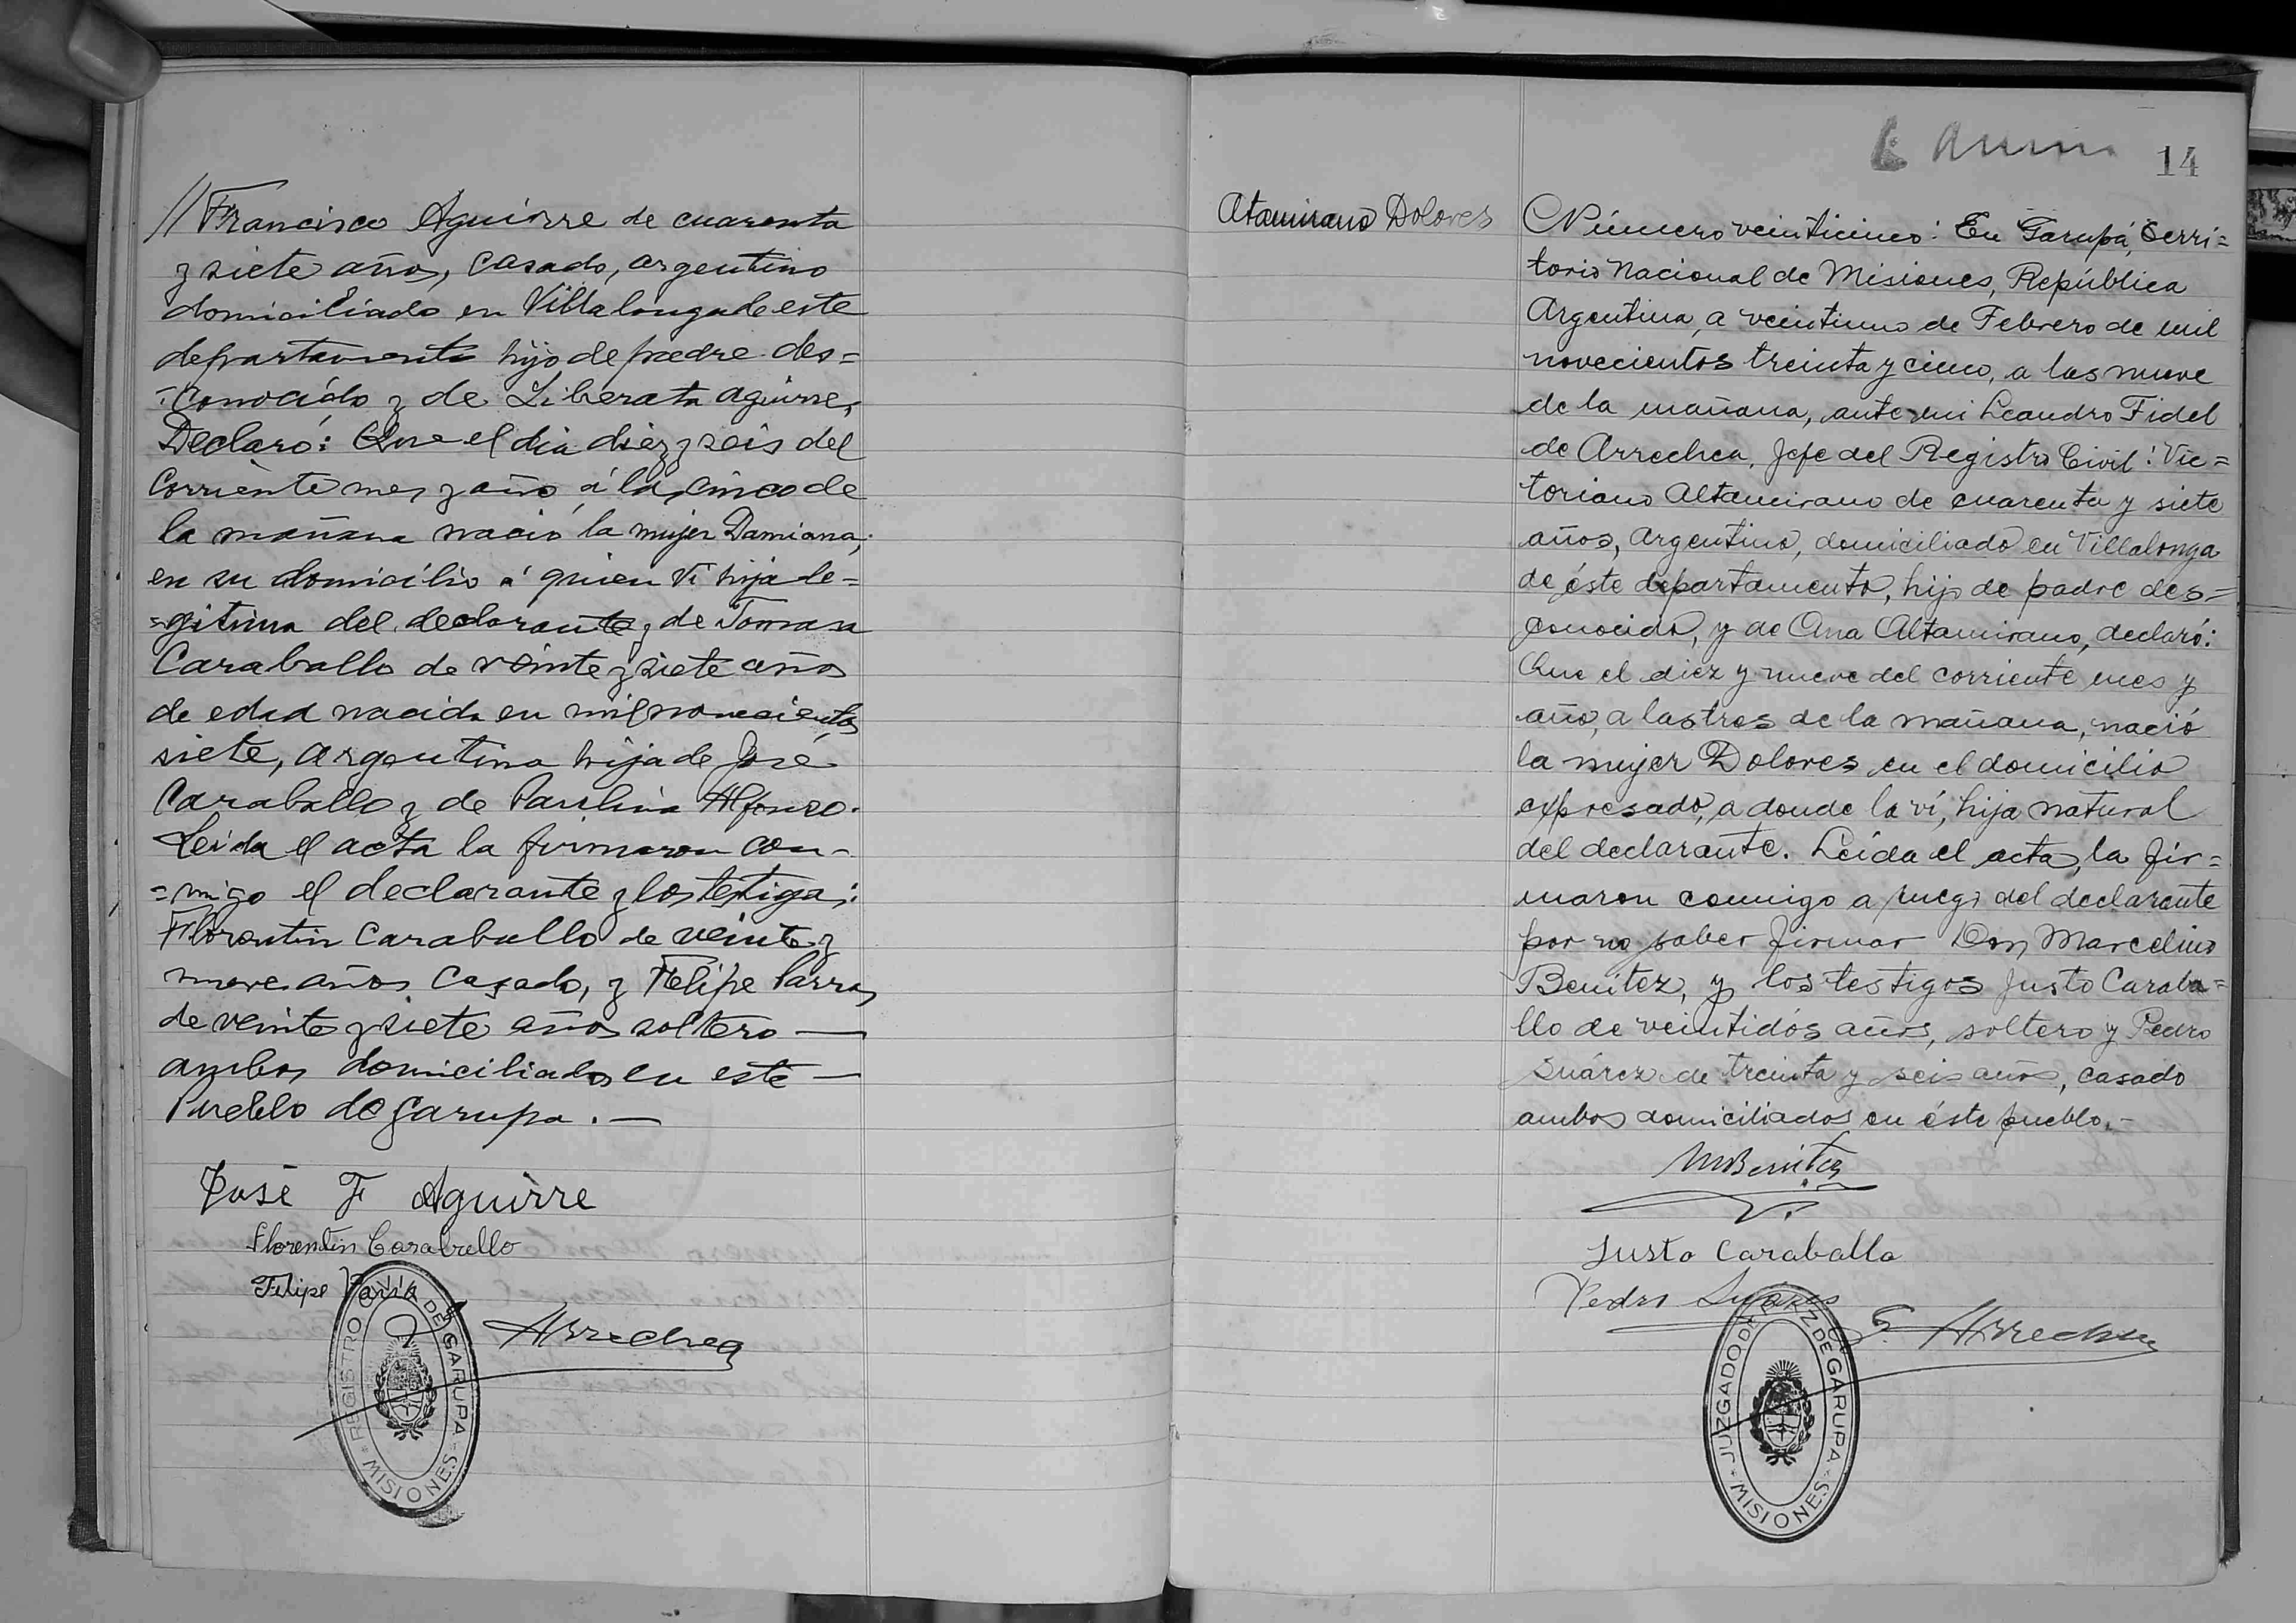 //Francisco Aguirre de cuarenta
y siete años, casado, argentino
domiciliado en Villalonga de este
departamento hijo de padre des=
=conocido y de Liberata Aguirre,
Declaró: Que el dia diez y seis del
corriente mes y año, á las cinco de
la mañana nació la mujer Damiana,
en su domicilio á quien ví hija le=
=gitima del declarante y de Tomasa
Caraballo de veinte y siete años
de edad nacida en mil novecientos
siete, argentina hija de José
Caraballo y de Paulina Alfonso.
Leida el acta la firmaron con-
=migo el declarante y los testigos:
Florentin Caraballo de veinte y
nueve años casado, y Felipe Parra,
de veinte y siete años soltero —
ambos domiciliados en este —
Pueblo de Garupa. —
José F Aguirre
Florentin Caraballo
Felipe Parra
Arrechea
REGISTRO CIVIL DE GARUPA
MISIONES
14
Atamirano Dolores
Número veinticinco: En Garupá, Terri=
torio Nacional de Misiones, República
Argentina, a veintiuno de Febrero de mil
novecientos treinta y cinco, a las nueve
de la mañana, ante mi Leandro Fidel
de Arrechea, Jefe del Registro Civil: Vic=
toriano Altamirano de cuarenta y siete
años, Argentino, domiciliado en Villalonga
de éste departamento, hijo de padre des=
conocido, y de Ana Altamirano, declaró:
Que el diez y nueve del corriente mes y
año, a las tres de la mañana, nació
la mujer Dolores en el domicilio
expresado, a donde la ví, hija natural
del declarante. Leída el acta, la fir=
maron conmigo a ruego del declarante
por no saber firmar Don Marcelino
Benitez, y los testigos Justo Caraba=
llo de veintidós años, soltero y Pedro
Suárez de treinta y seis años, casado
ambos domiciliados en éste pueblo.-
MBenitez
Justo Caraballo
Pedro Suárez
Arrechea
JUZGADO DE PAZ DE GARUPA
MISIONES